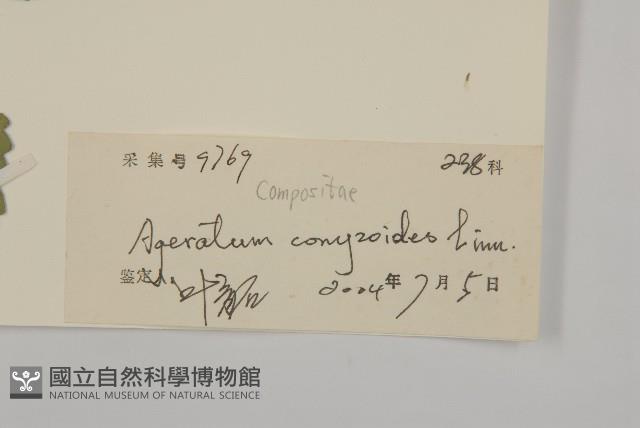 采集号 9769 238科
Compositae
Ageratum conyzoides Linn.
鉴定人 2004年7月5日
國立自然科學博物館
NATIONAL MUSEUM OF NATURAL SCIENCE